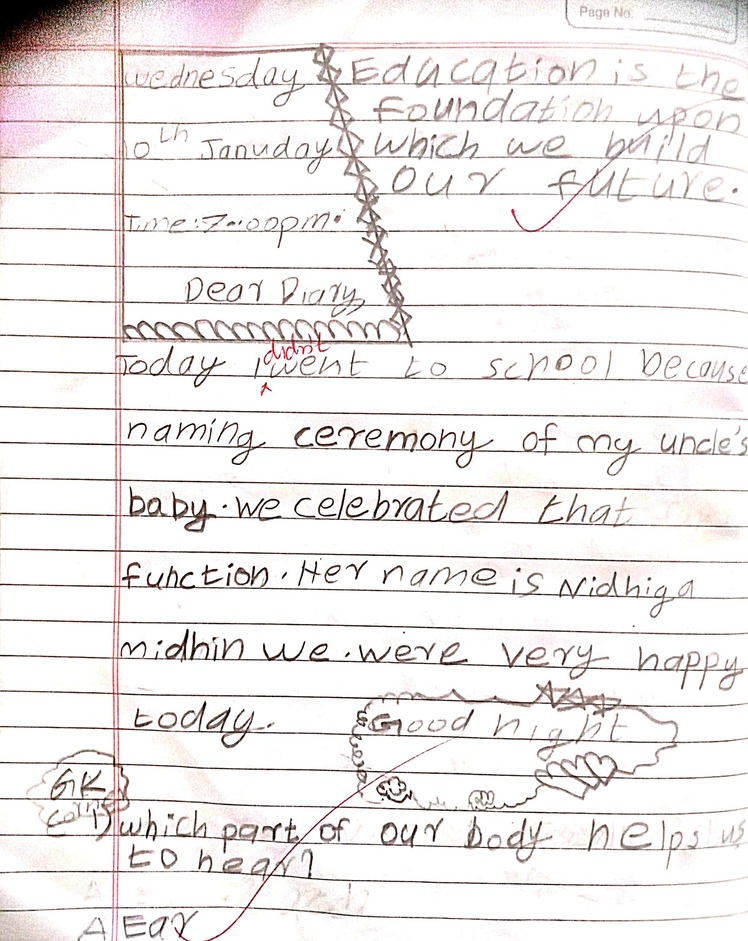 Page No.
Wednesday
10th Januday
Time:7..00pm.
Dear Diary,
Education is the
foundation upon
which we build
our future.
Today I didn't went to school because
naming ceremony of my uncle's
baby. we celebrated that
function. Her name is Nidhiga
midhin we. were very happy
today.
Good night
GK
1) which part of our body helps us
to hear?
A Ear